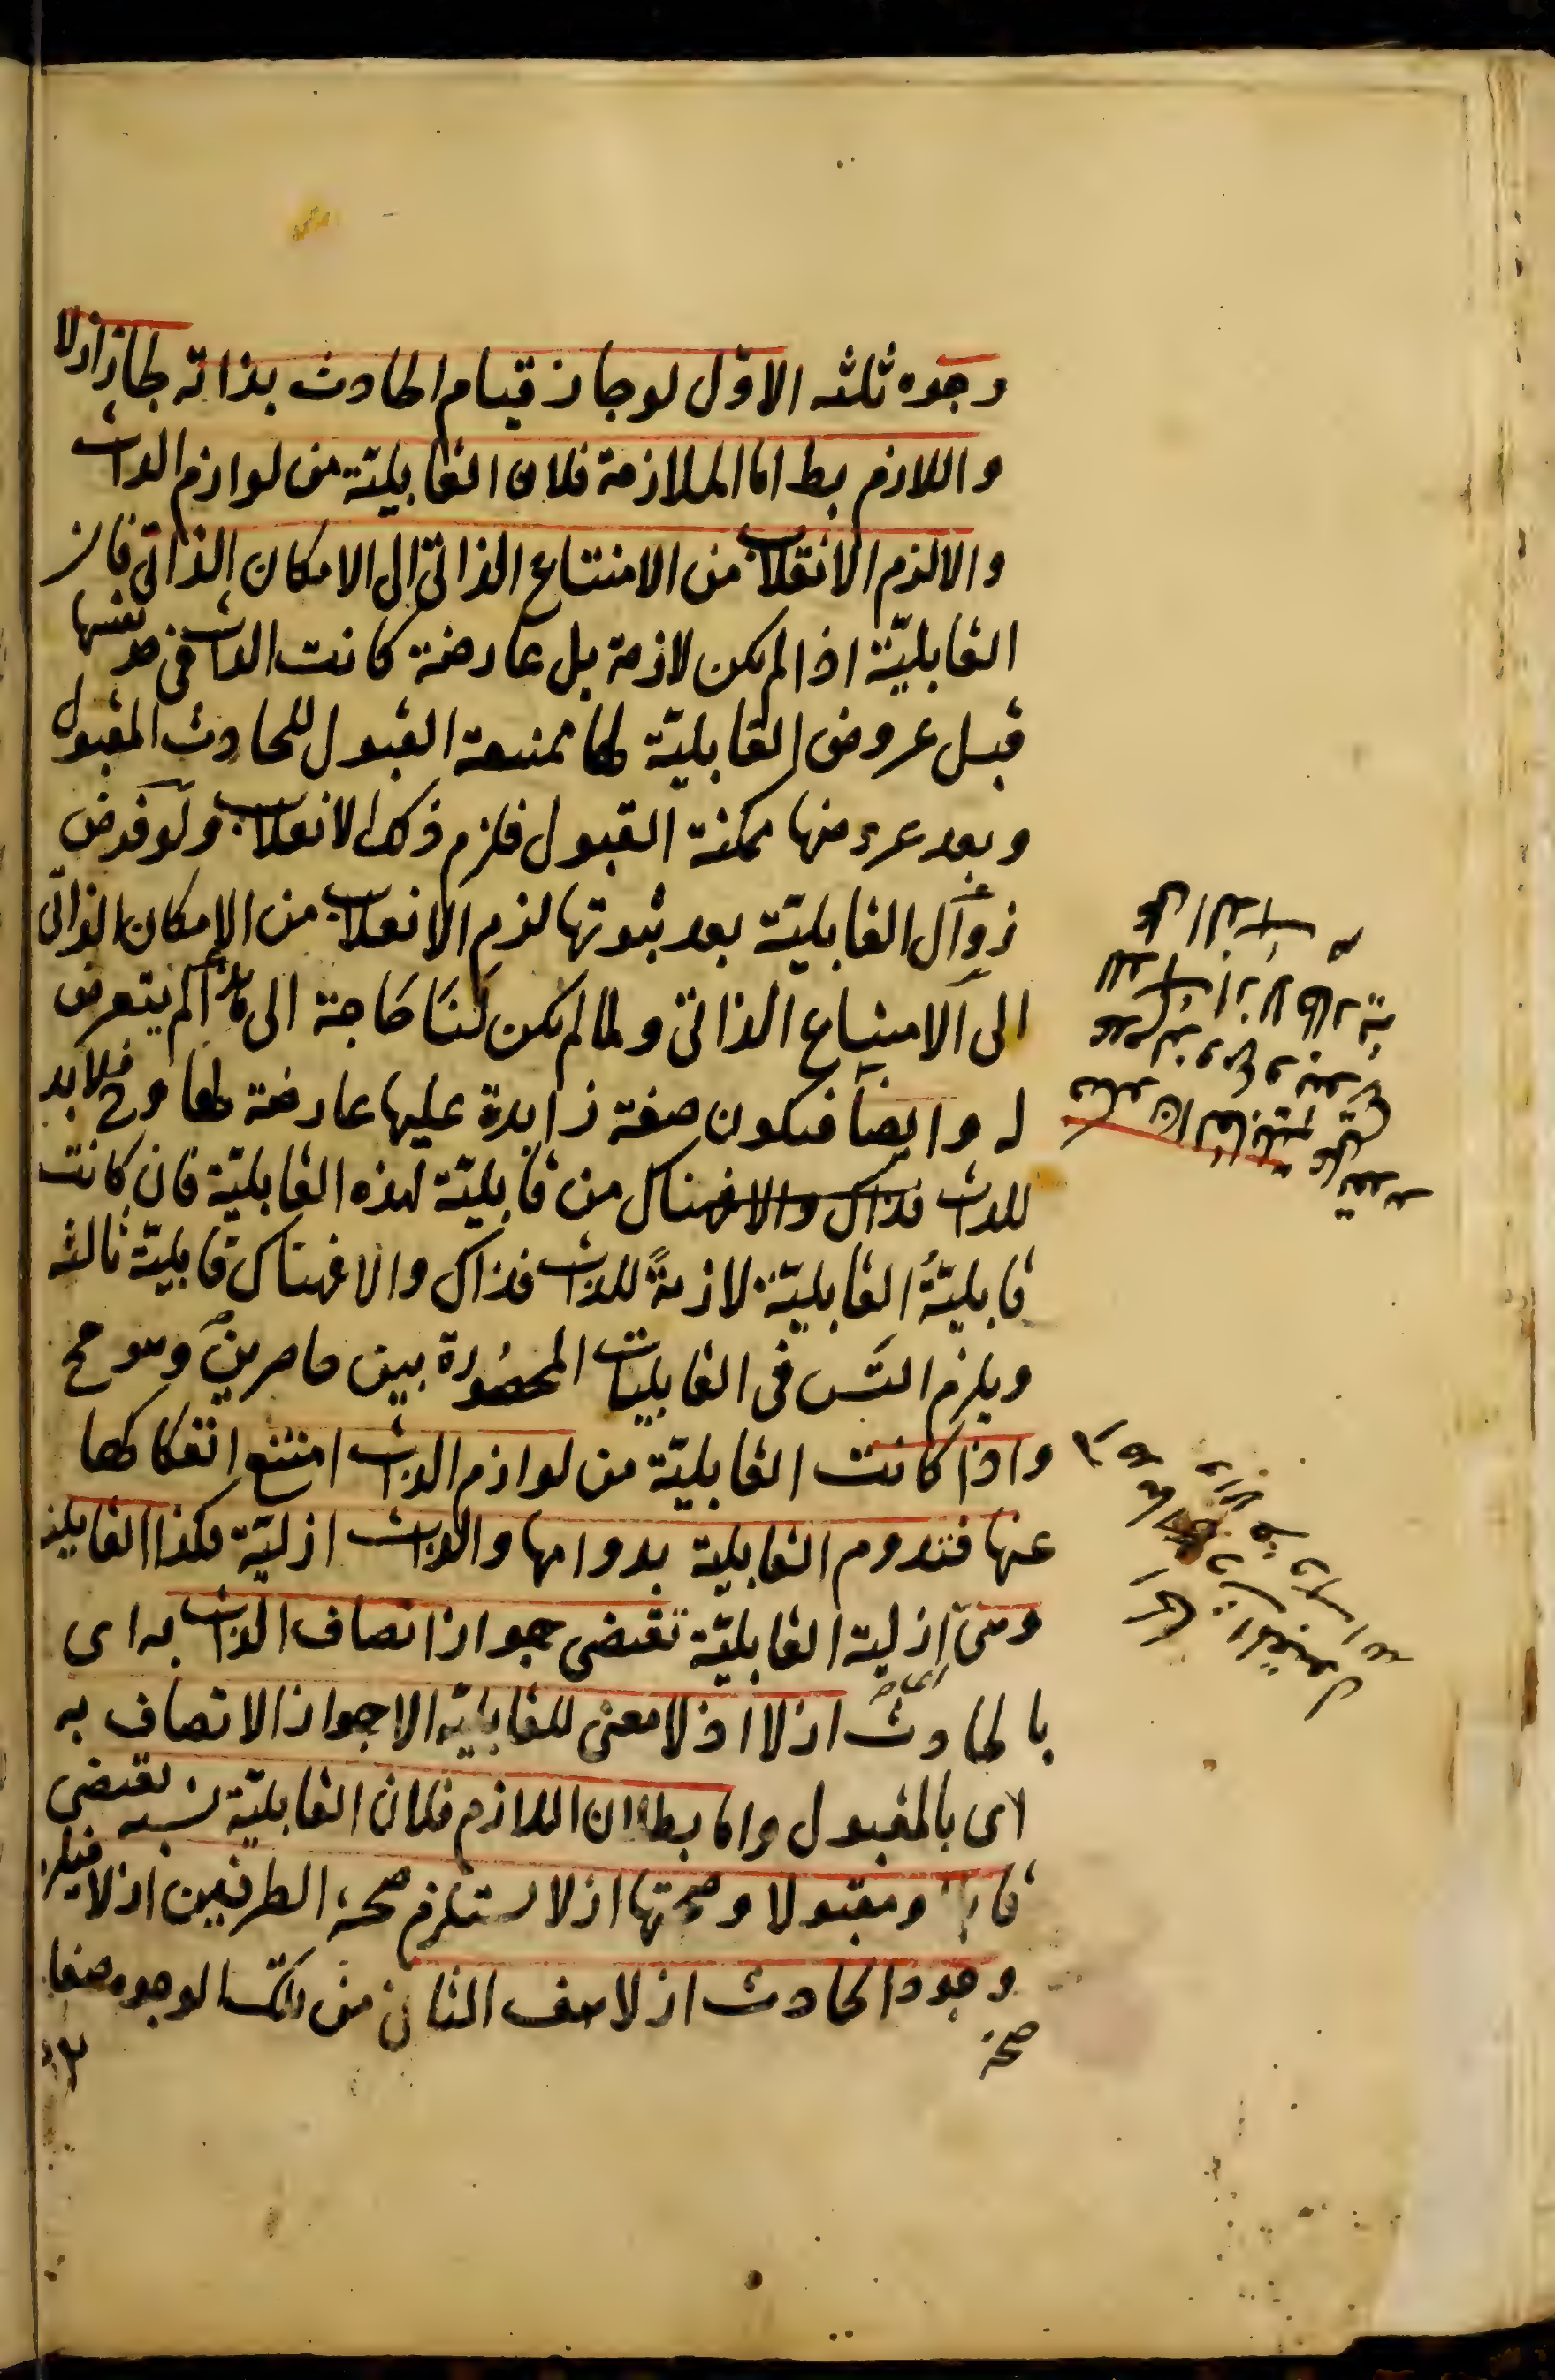 وجوه ثلثه الاوّل لو جاز قيام الحادث بذاته لجاز ازلا
واللازم بط اما الملازمة فلان القابليّة من لوازم الذات
والا لزم الانقلاب من الامتناع الذاتى الى الامكان الذاتى فان
القابليّة اذا لم يكن لازمة بل عارضة كانت الذات فى حد نفسها
قبل عروض القابليّة لها ممتنعة القبول للحادث المقبول
وبعد عروضها ممكنة القبول فلزم ذلك الانقلاب ولو فرض
زوال القابليّة بعد ثبوتها لزم الانقلاب من الامكان الذاتى
الى الامتناع الذاتى ولما لم يكن لنا حاجة الى هذا لم يتعرض
له وايضا فيكون صفة زايدة عليها عارضة لها وح فلابد
للذات من قابليّة لهذه القابليّة فان كانت
قابليّةُ القابليّة لازمةً للذات فذاك والا فهناك قابليّة ثالثه
ويلزم التس فى القابليات المحصُورة بين حاصرين وهو مح
واذا كانت القابليّة من لوازم الذات امتنع انفكاكها
عنها فتدوم القابلية بدوامها والذات ازليّة فكذا القابلية
وهى ازلية القابليّة تقتضى جواز اتصاف الذات به اى
بالحادث ازلا اذ لا معنى للقابليّة الا جواز الاتصاف به
اى بالمقبول واما بطلان اللازم فلان القابليّة نسبه تقتضى
قابلا ومقبولا وصحتها ازلا يستلزم صحة الطرفين ازلا فيلزم
صحة
وجود الحادث ازلا هف الثانى من تلك الوجوه صفا